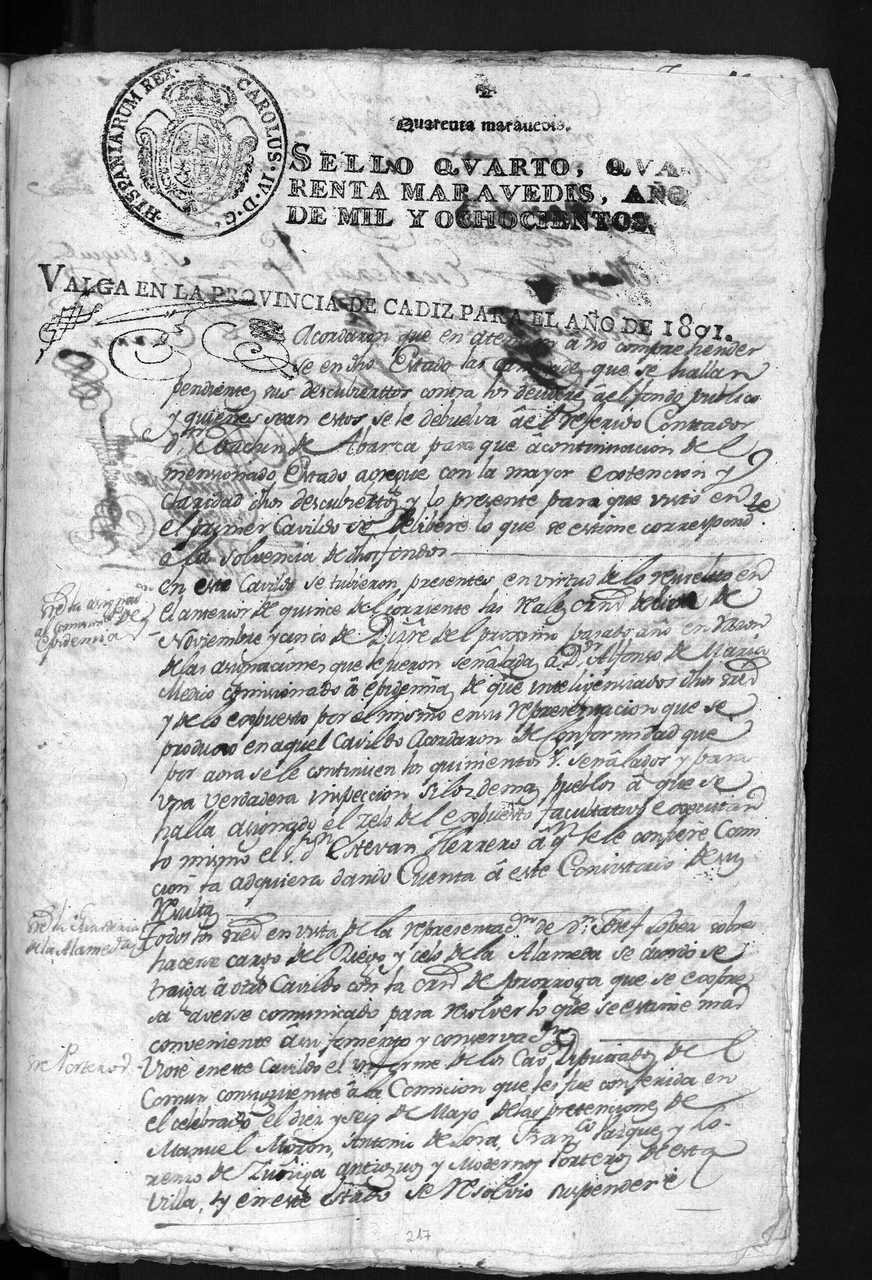 HISPANIARUM REX. CAROLUS·IV·D·G·
Quarenta maravedis.
SELLO QVARTO, QVA-
RENTA MARAVEDIS, AÑO
DE MIL Y OCHOCIENTOS.
VALGA EN LA PROVINCIA DE CADIZ PARA EL AÑO DE 1801.
Acordaron que en atencion â no comprehender
se en dho Estado las que se hallan
pendientes sus descubiertos contra los deudores âel fondo publico
y quienes sean estos se le debuelva âel referido Conttador
Dn Joachin de Abarca para que âcontinuacion del
mensionado Estado agregue con la mayor extencion y
claridad dhos descubiertos y lo presente para que visto en
el primer Cavildo se delibere lo que se estime correspond.te
a la solvencia de dhos fondos
en este Cavildo se tubieron presentes en virtud de lo resuelto en
el anterior de quince del corriente las Reales de
Noviembre y cinco de Dizre del proximo pasado año en razon
de las asignaciones que le fueron señaladas â Dn Alfonso de Maria
Medico comisionado â epidemias de que inteligensiados dhos
y de lo expuesto por el mismo en su representacion que se
produxo en aquel Cavildo Acordaron de conformidad que
por aora se le continuen los quinientos r.s señalados y para
una verdadera inspeccion si los demas pueblos â que se
halla asignado el zelo del expuesto facultativo executan
lo mismo el Sr. Dn Estevan Herrero â qn se le confiere Comi
cion la adquiera dando Cuenta â este Consistorio de su
Resulta
Todos los en vista de la representa.on de Dn Josef Lopez sobre
hacerse cargo del Riego y celo de la Alameda se
traiga â otro Cavildo con la de prorroga que se expre
sa averse comunicado para resolver lo que se estime mas
conveniente â su fomento y conserva.on
Viose en este Cavildo el informe de los Cavos Diputados del
Comun consiguiente â la Comicion que les fue conferida en
el celebrado el diez y seis de Mayo de las pretenciones de
Manuel Moron, Antonio de Lora, Franco Vasques y Lo-
renzo de Zuñiga antiguos y Modernos Porteros de esta
Villa, y en este estado se resolvio suspender
epidemia
de la Alameda
Porteros
217